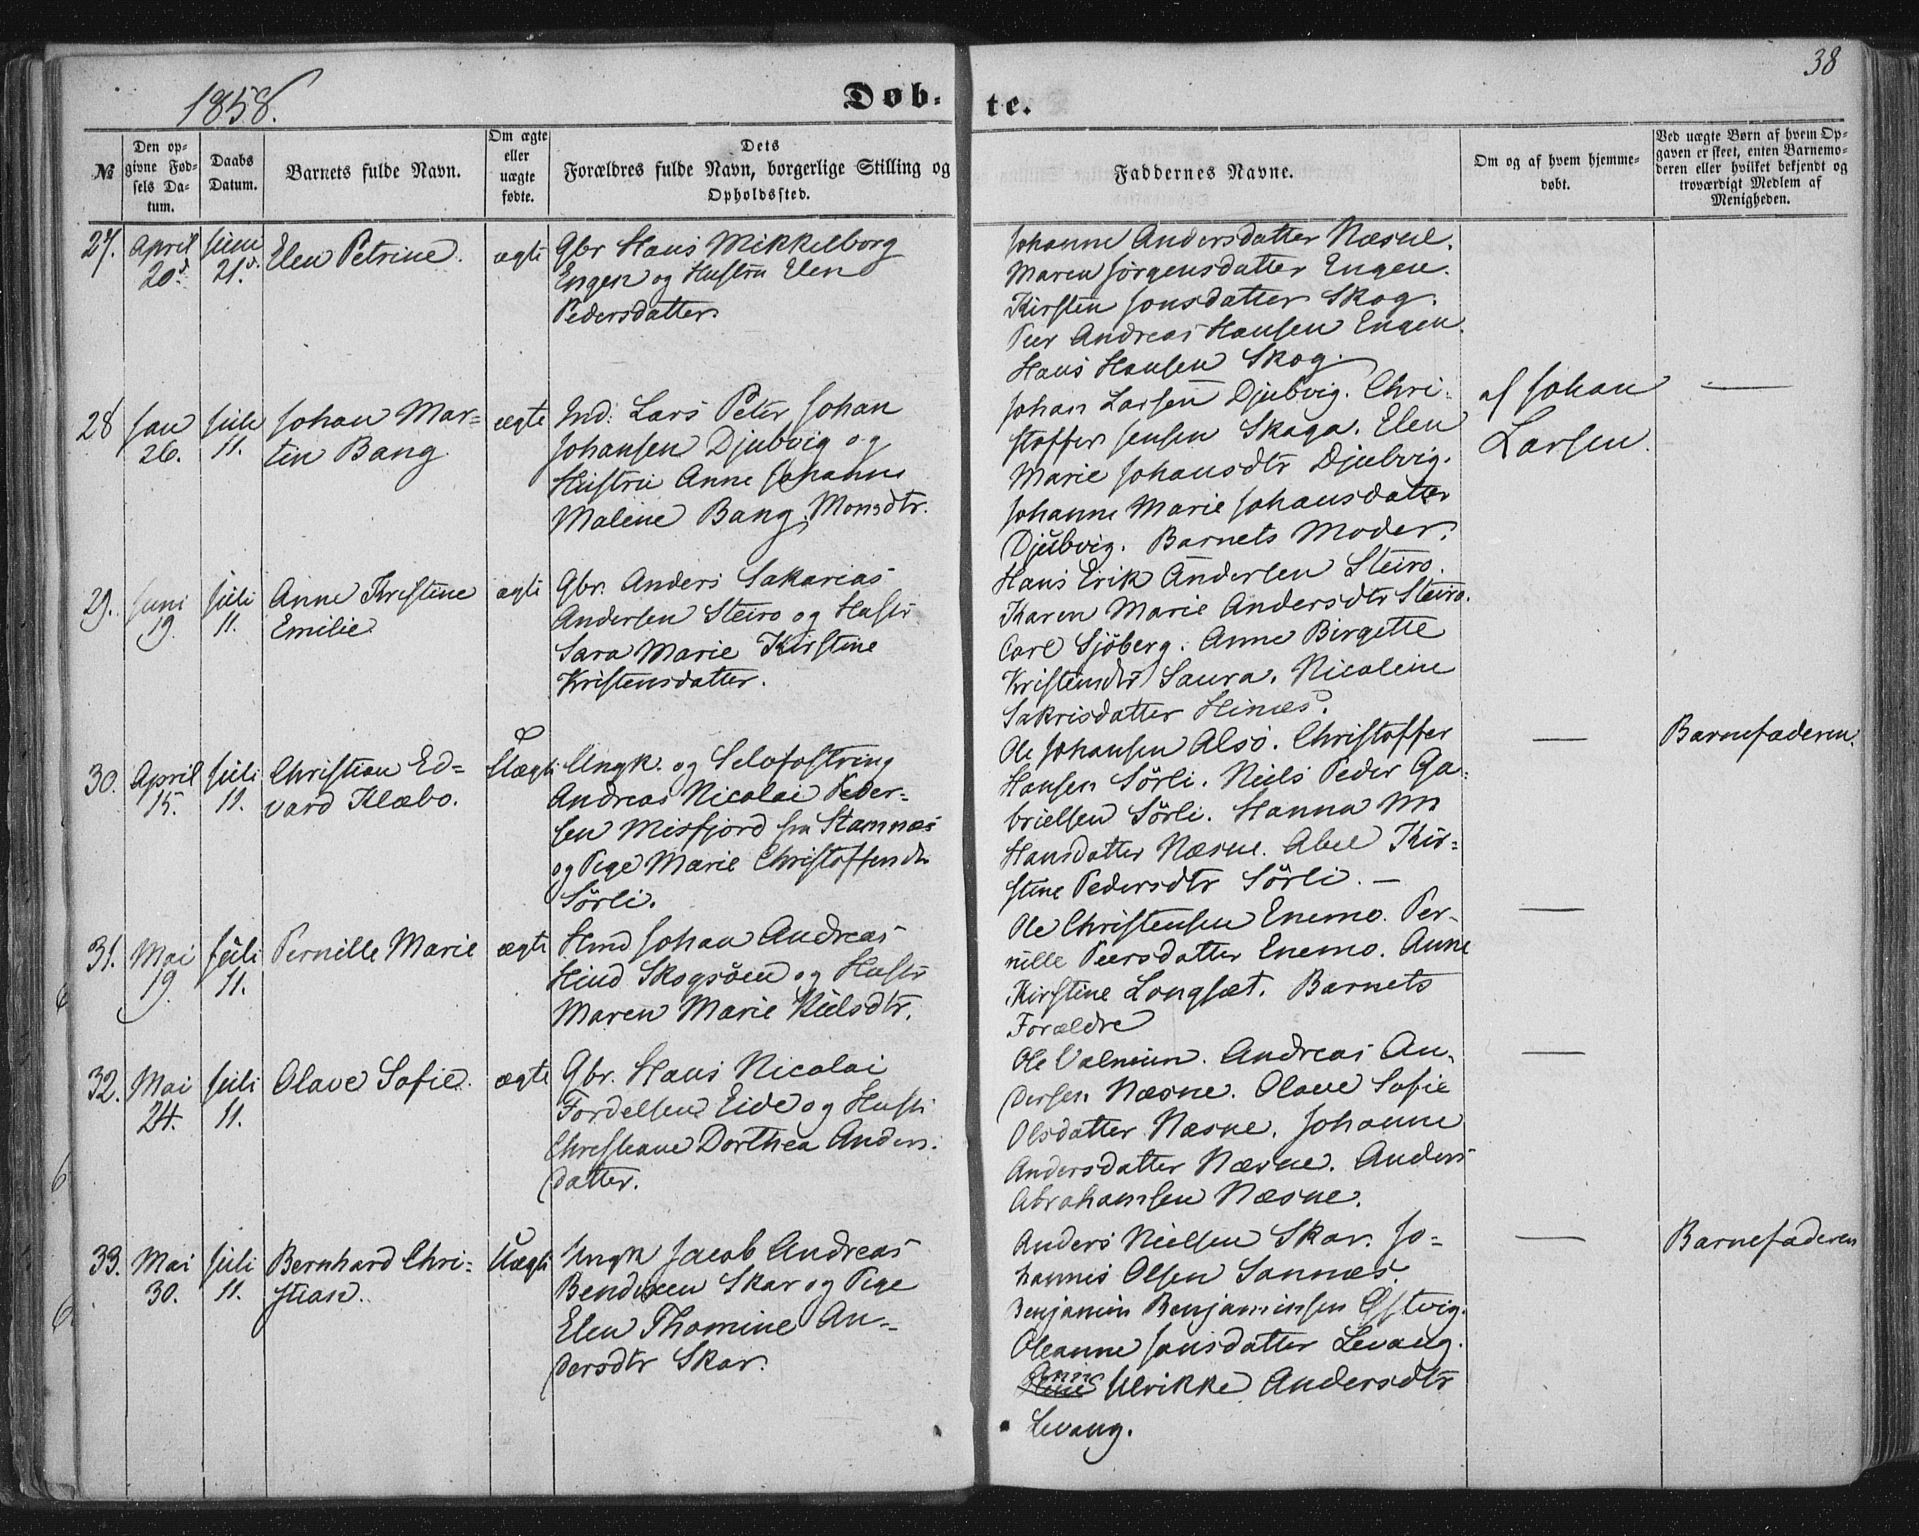 38
1858.
Døb-
te.
№
Den op-
givne Fød-
sels Da-
tum.
Daabs
Datum.
Barnets fulde Navn.
Om ægte
eller
uægte
fødte.
Dets
Forældres fulde Navn, borgerlige Stilling og
Opholdssted.
Faddernes Navne.
Om og af hvem hjemme-
døbt.
Ved uægte Børn af hvem Op-
gaven er skeet, enten Barnemo-
deren eller hvilket bekjendt og
troværdigt Medlem af
Menigheden.
27.
April
20d.
Juni
21d.
Elen Petrine.
ægte
Gbr Hans Mikkelborg
Engen og Hustru Elen
Pedersdatter
Johanne Andersdatter Næsne.
Maren Jörgensdatter Engen.
Kirsten Jonsdatter Skog.
Peer Andreas Hansen Engen.
Hans Hansen Skog.
28
Jan
26.
Juli
11.
Johan Mar-
tin Bang
ægte
Ind: Lars Peter Johan
Johansen Djubvig og
Hustru Anne Johanne
Malene Bang, Monsdtr.
Johan Larsen Djubvig. Chri-
stoffer Jensen Skaga. Elen
Marie Johansdtr Djubvig.
Johanne Marie Johansdatter
Djubvig. Barnets Moder.
af Johan
Larsen.
—
29.
Juni
19.
Juli
11.
Anne Kristine
Emilie
ægte
Gbr. Anders Sakarias
Andersen Steiro og Hustr
Sara Marie Kirstine
Kristensdatter.
Hans Erik Andersen Steiro.
Karen Marie Andersdtr Steiro.
Carl Sjöberg. Anne Birgette
Kristensdtr Saura. Nicoline
Sakrisdatter Hinæs.
30.
April
15.
Juli
11.
Christian Ed-
vard Klæbo.
Uægte
Ungk. og Selvfostring
Andreas Nicolai Peder-
sen Misfjord fra Stamnæs
og Pige Marie Christoffersdtr
Sörli.
Ole Johansen Alsö. Christoffer
Hansen Sörli. Niels Peder Ga-
brielsen Sörli. Hanna M
Hansdatter Næsne. Abel Kir-
stine Pedersdtr Sörli. —
—
Barnefaderen.
31.
Mai
19.
Juli
11.
Pernille Marie
ægte
Hmd Johan Andreas
Hind Skogsöen og Hustr
Maren Marie Nielsdtr.
Ole Christensen Enemo. Per-
nille Peersdatter Enemo. Anne
Kirstine Longset. Barnets
Forældre
—
32.
Mai
24.
Juli
11.
Olave Sofie.
ægte
Gbr. Hans Nicolai
Fordelsen Eide og Hustr
Christiane Dorthea Anders-
datter.
Ole Valneim. Andreas An-
dersen Næsne. Olave Sofie
Olsdatter Næsne. Johanne
Andersdatter Næsne. Anders
Abrahamsen Næsne.
—
33.
Mai
30.
Juli
11.
Bernhard Chri-
stian.
Uægte
Ungk Jacob Andreas
Bendixen Skar og Pige
Elen Thomine An-
dersdtr Skar.
Anders Nielsen Skar. Jo-
hannes Olsen Sannæs.
Benjamin Benjaminsen Østvig.
Oleanne Jonsdatter Levang.
Anne Ulrikke Andersdtr
Levang.
—
Barnefaderen